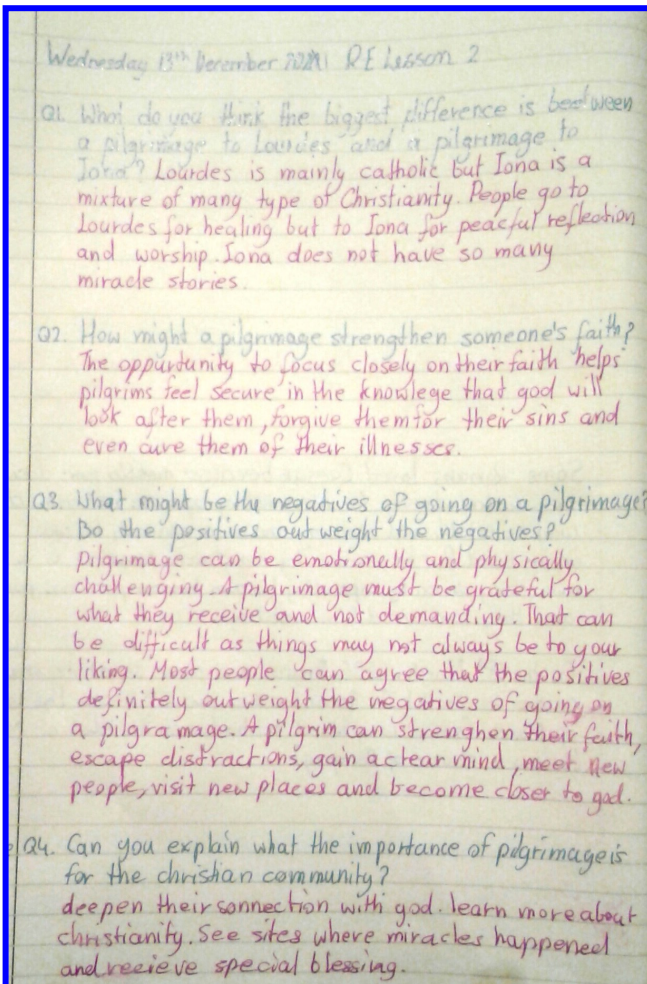 Wednesday 13th December RE Lesson 2
Q1. What do you think the biggest difference is beetween
a pilgrimage to Lourdes and a pilgrimage to
Iona? Lourdes is mainly catholic but Iona is a
mixture of many type of Christianity. People go to
Lourdes for healing but to Iona for peacful reflection
and worship. Iona does not have so many
miracle stories.
Q2. How might a pilgrimage strengthen someone's faith?
The oppurdunity to focus closely on their faith helps
pilgrims feel secure in the knowlege that god will
look after them, forgive them for their sins and
even cure them of their illnesses.
Q3. What might be the negatives of going on a pilgrimage?
Do the positives outweight the negatives?
Pilgrimage can be emotionally and physically
challenging. A pilgrimage must be grateful for
what they receive and not demanding. That can
be difficult as things may not always be to your
liking. Most people can agree that the positives
definitely outweight the negatives of going on
a pilgramage. A pilgrim can strenghen their faith,
escape distractions, gain a clear mind, meet new
people, visit new places and become closer to god.
Q4. Can you explain what the importance of pilgrimage is
for the christian community?
deepen their connection with god. learn more about
christianity. See sites where miracles happened
and recieve special blessing.